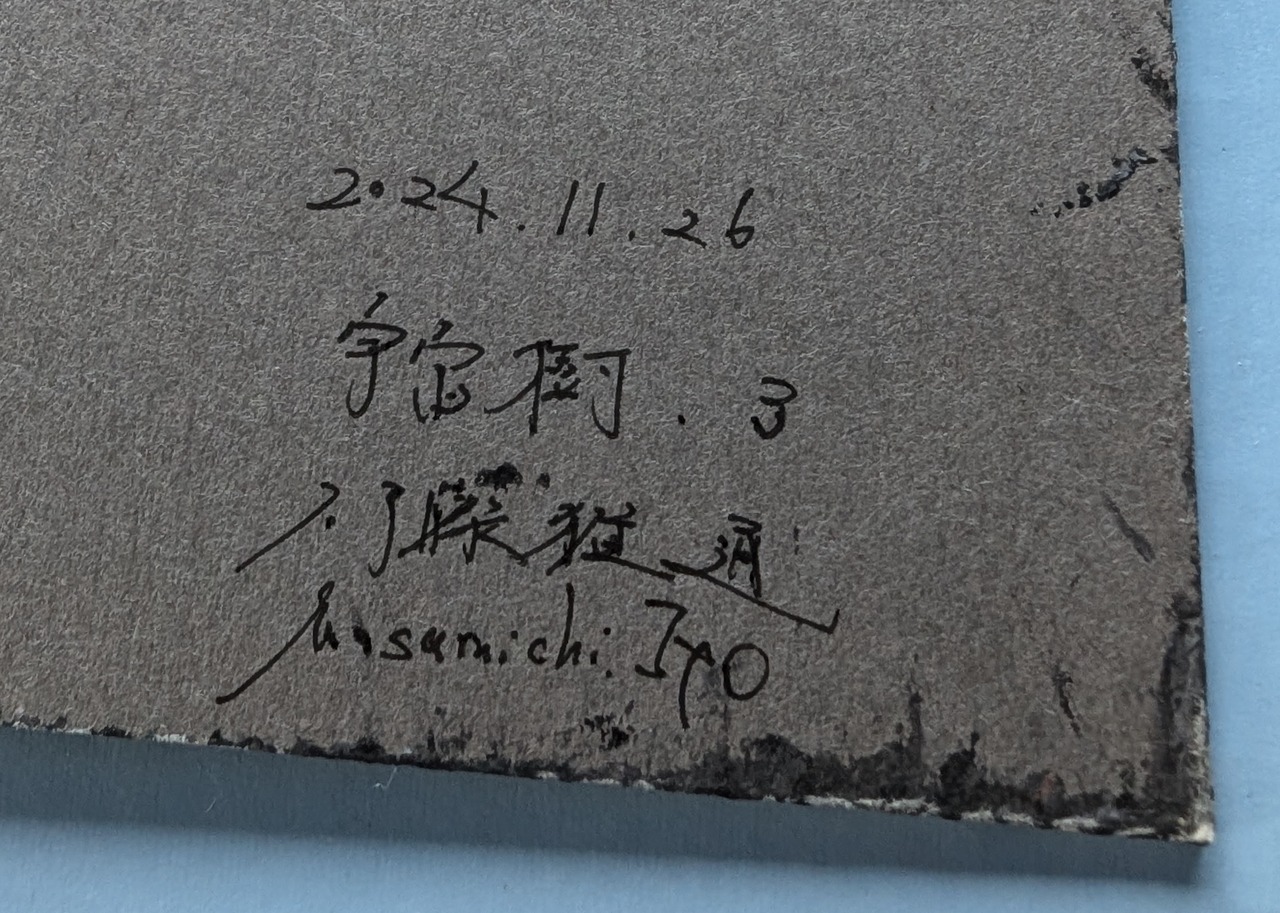 2024.11.26
宇宙樹.3
藤雅通
Masamichi Iyo